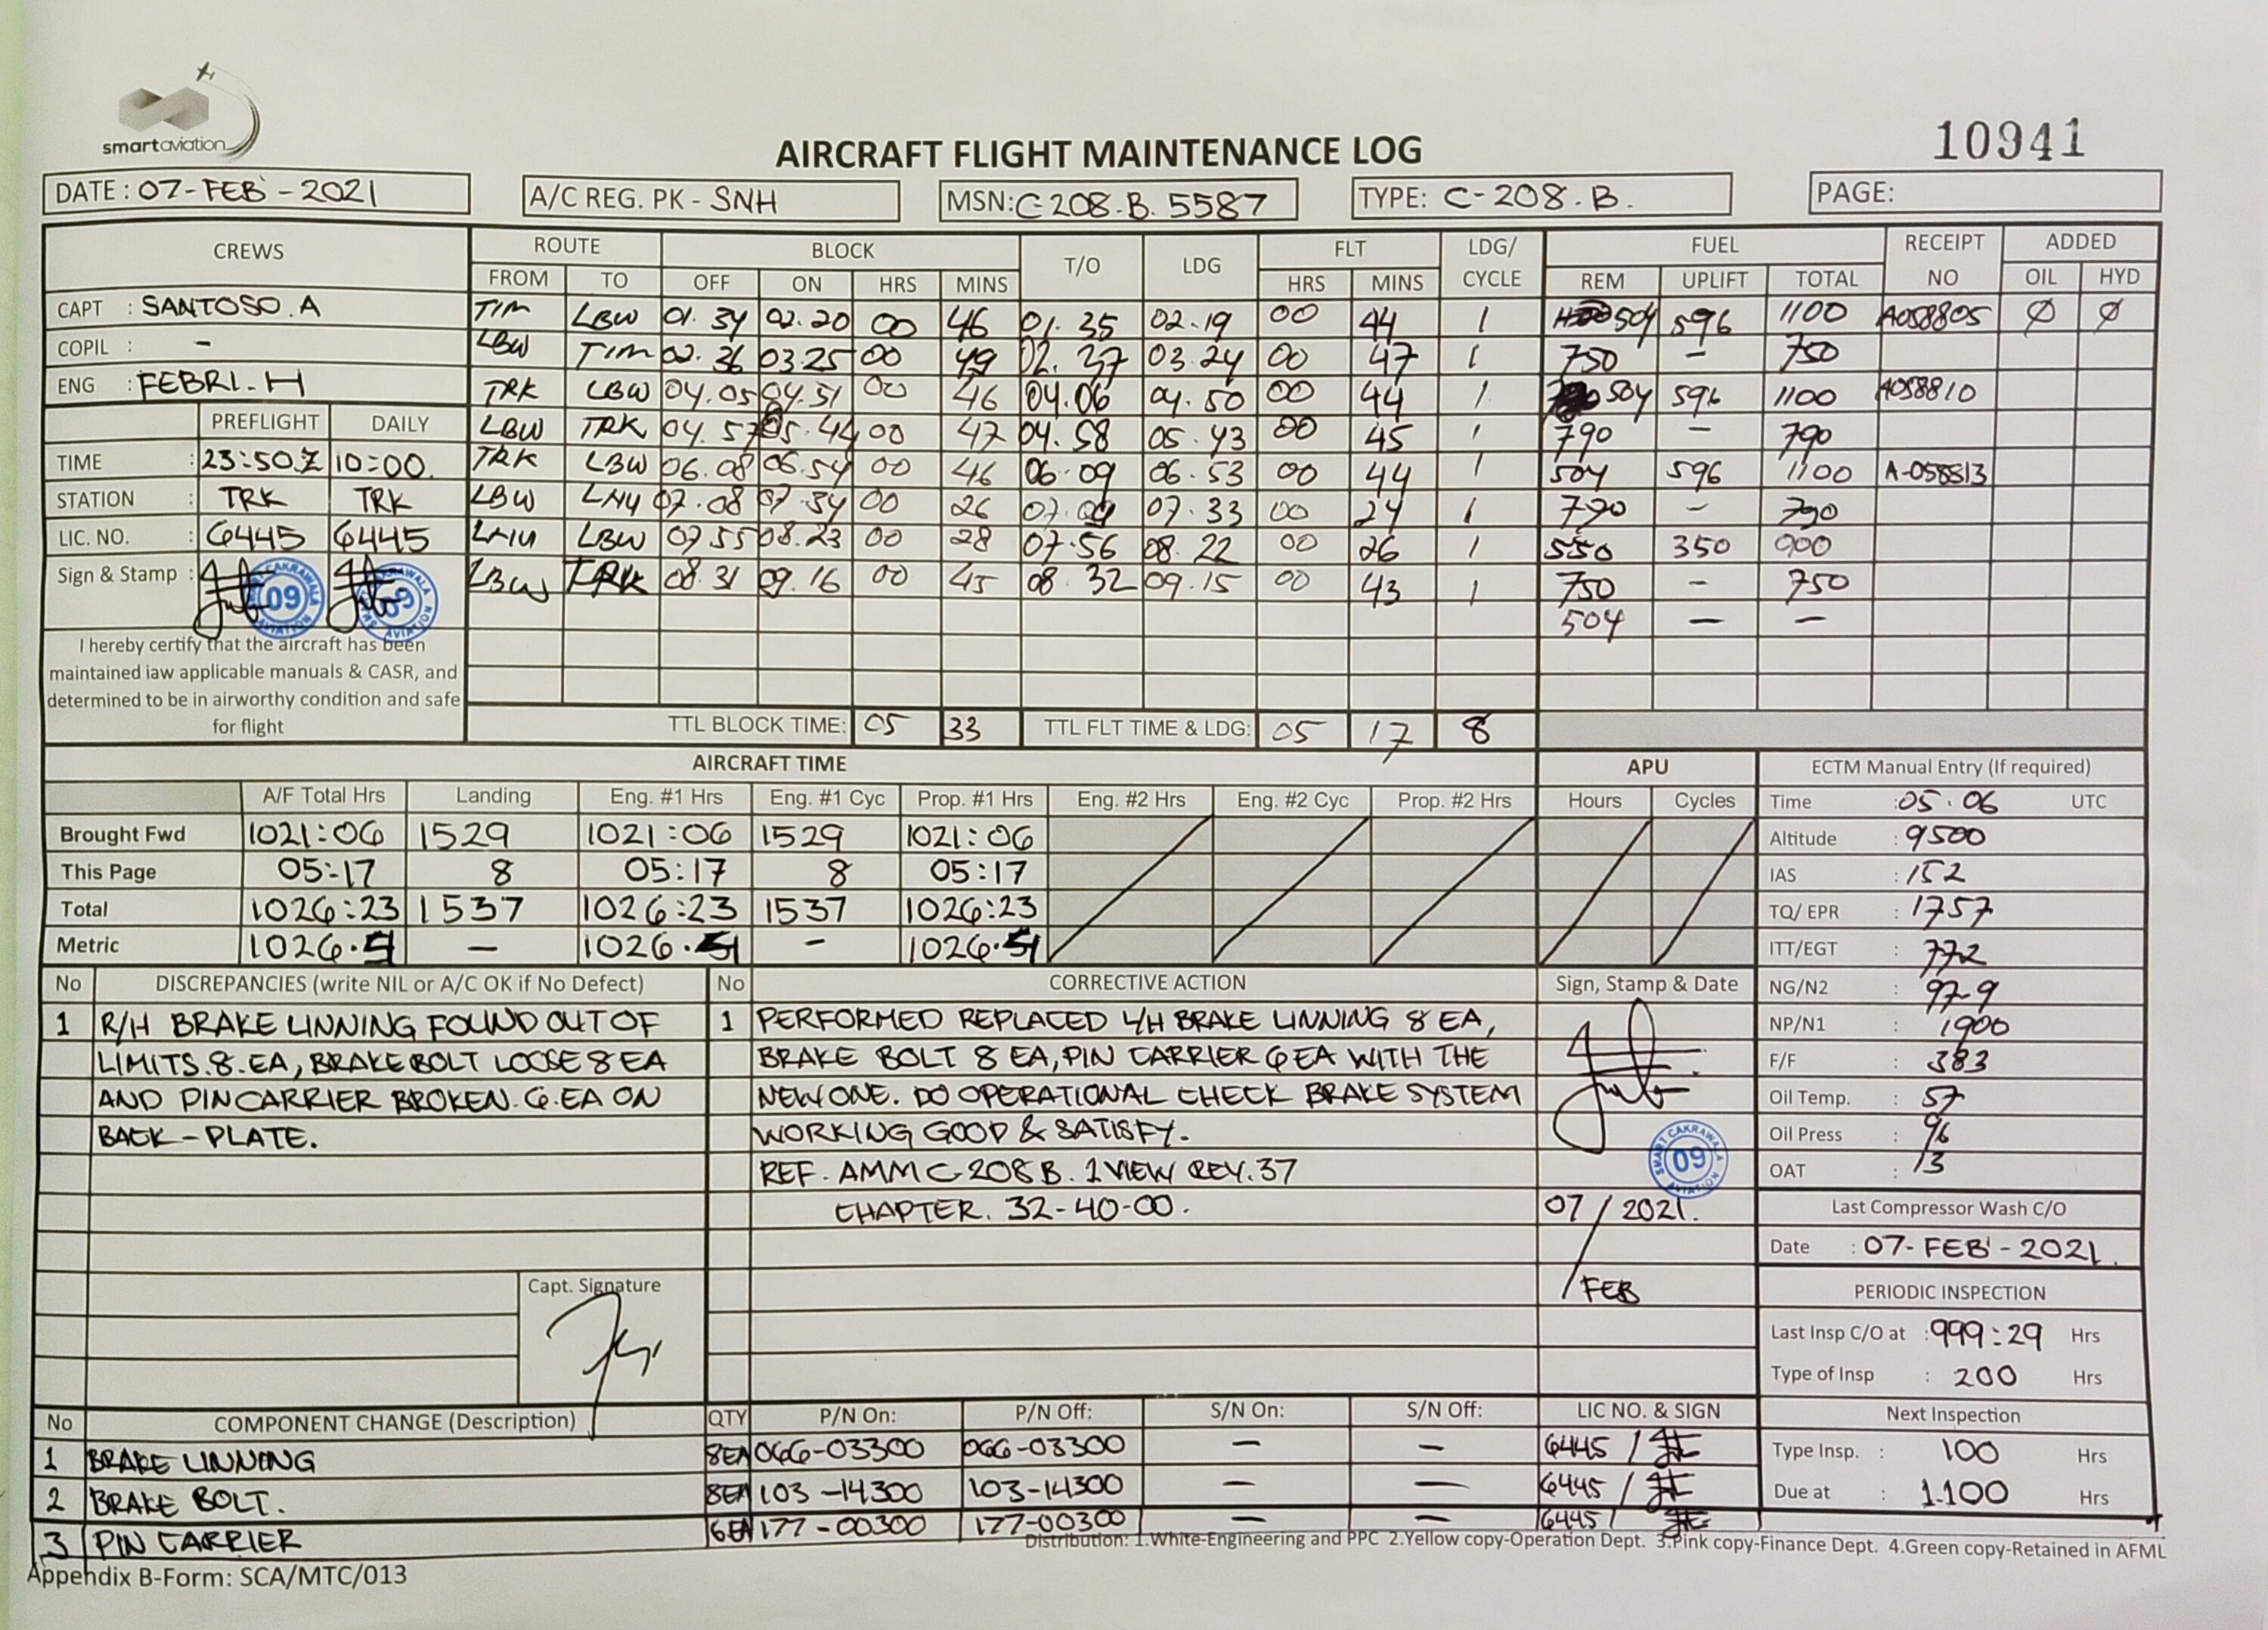 smartaviation
10941
AIRCRAFT FLIGHT MAINTENANCE LOG
DATE : 07-FEB-2021 A/C REG. PK - SNH MSN: C208.B.5587 TYPE: C-208.B. PAGE:
CREWS ROUTE BLOCK T/O LDG FLT LDG/ CYCLE FUEL RECEIPT NO ADDED
FROM TO OFF ON HRS MINS HRS MINS REM UPLIFT TOTAL OIL HYD
CAPT : SANTOSO.A TIM LBW 01.34 02.20 00 46 01.35 02.19 00 44 1 504 596 1100 A058805 Ø Ø
COPIL : - LBW TIM 02.36 03.25 00 49 02.37 03.24 00 47 1 750 - 750
ENG : FEBRI.H TRK LBW 04.05 04.51 00 46 04.06 04.50 00 44 1 504 596 1100 A058810
PREFLIGHT DAILY LBW TRK 04.57 05.44 00 47 04.58 05.43 00 45 1 790 - 790
TIME : 23:50.Z 10:00. TRK LBW 06.08 06.54 00 46 06.09 06.53 00 44 1 504 596 1100 A-058813
STATION : TRK TRK LBW 07.08 07.34 00 26 07.09 07.33 00 24 1 790 - 790
LIC. NO. : 6445 6445 LBW 07.55 08.23 00 28 07.56 08.22 00 26 1 550 350 900
Sign & Stamp : 09 09 LBW TRK 08.31 09.16 00 45 08.32 09.15 00 43 1 750 - 750
504 - -
I hereby certify that the aircraft has been
maintained iaw applicable manuals & CASR, and
determined to be in airworthy condition and safe
for flight
TTL BLOCK TIME: 05 33 TTL FLT TIME & LDG: 05 17 8
AIRCRAFT TIME APU ECTM Manual Entry (If required)
A/F Total Hrs Landing Eng. #1 Hrs Eng. #1 Cyc Prop. #1 Hrs Eng. #2 Hrs Eng. #2 Cyc Prop. #2 Hrs Hours Cycles Time : 05.06 UTC
Brought Fwd 1021:06 1529 1021:06 1529 1021:06 Altitude : 9500
This Page 05:17 8 05:17 8 05:17 IAS : 152
Total 1026:23 1537 1026:23 1537 1026:23 TQ/ EPR : 1757
Metric 1026. - 1026. - 1026. ITT/EGT : 772
No DISCREPANCIES (write NIL or A/C OK if No Defect) No CORRECTIVE ACTION Sign, Stamp & Date NG/N2 : 97.9
1 R/H BRAKE LINNING FOUND OUT OF 1 PERFORMED REPLACED L/H BRAKE LINNING 8 EA, NP/N1 : 1900
LIMITS.8.EA, BRAKE BOLT LOOSE 8 EA BRAKE BOLT 8 EA, PIN CARRIER 6 EA WITH THE F/F : 383
AND PIN CARRIER BROKEN.6.EA ON NEW ONE. DO OPERATIONAL CHECK BRAKE SYSTEM Oil Temp. : 57
BACK - PLATE. WORKING GOOD & SATISFY. Oil Press : 96
REF. AMM C-208 B. 1 VIEW REV.37 SMART CAKRAWALA AVIATION 09 OAT : 13
CHAPTER. 32-40-00. 07 / 2021. Last Compressor Wash C/O
Date : 07-FEB-2021.
Capt. Signature / FEB PERIODIC INSPECTION
Last Insp C/O at : 999:29 Hrs
Type of Insp : 200 Hrs
No COMPONENT CHANGE (Description) QTY P/N On: P/N Off: S/N On: S/N Off: LIC NO. & SIGN Next Inspection
1 BRAKE LINNING 8EA 066-03300 066-03300 - - 6445 / Type Insp. : 100 Hrs
2 BRAKE BOLT. 8EA 103-14300 103-14300 - - 6445 / Due at : 1.100 Hrs
3 PIN CARRIER 6EA 177-00300 177-00300 - - 6445 /
Distribution: 1.White-Engineering and PPC 2.Yellow copy-Operation Dept. 3.Pink copy-Finance Dept. 4.Green copy-Retained in AFML
Appendix B-Form: SCA/MTC/013